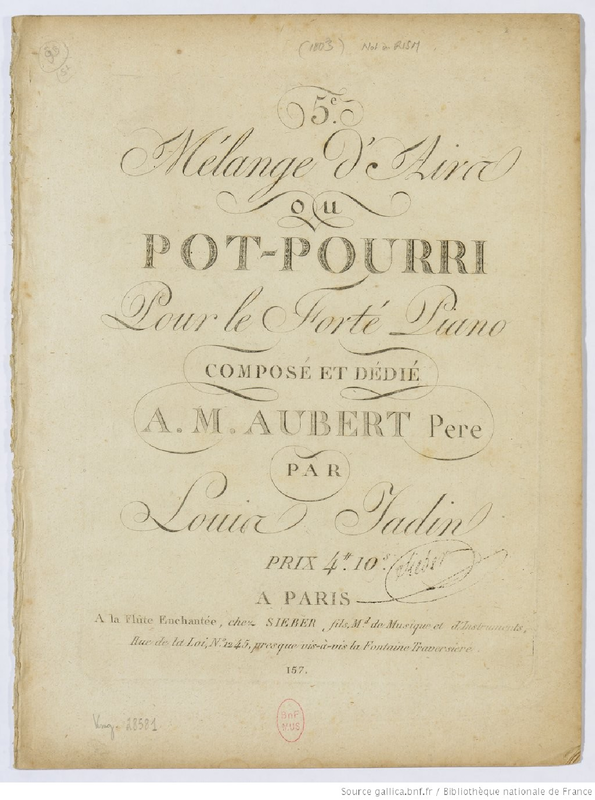 (1803) Not in RISM
5e.
Mélange d'Airs
ou
POT-POURRI
Pour le Forté Piano
COMPOSÉ ET DÉDIÉ
A. M. AUBERT Pere
PAR
Louis Jadin
PRIX 4tt 10s
Sieber
A PARIS
A la Flûte Enchantée, chez SIEBER, fils, Md. de Musique et d'Instruments,
Rue de la Loi, No. 1245, presque vis-à-vis la Fontaine Traversière.
157.
Vmg. 28581
BnF
MUS
Source gallica.bnf.fr / Bibliothèque nationale de France